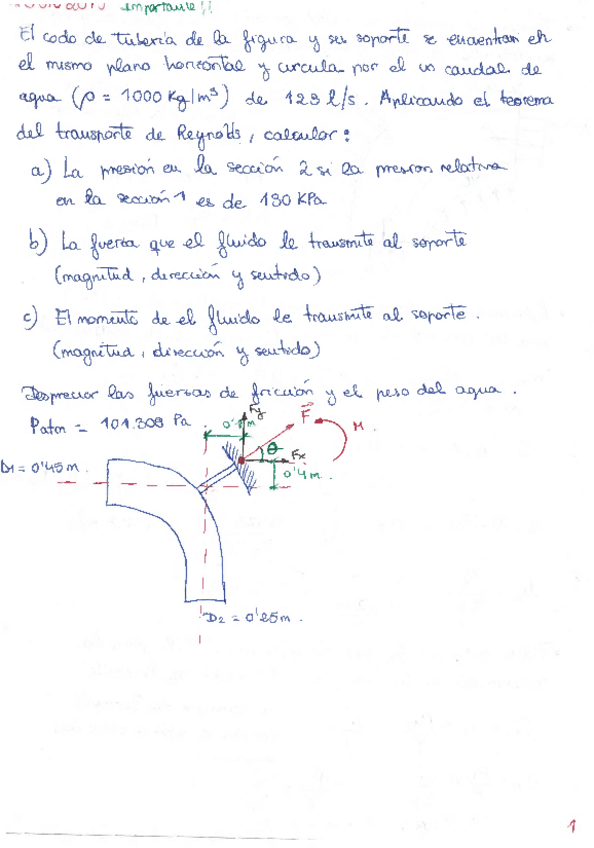 importante!!
El codo de tubería de la figura y su soporte se encuentran en
el mismo plano horizontal y circula por el un caudal de
agua (ρ = 1000 Kg/m³) de 123 l/s. Aplicando el teorema
del transporte de Reynolds, calcular:
a) La presión en la sección 2 si la presion relativa
en la sección 1 es de 130 KPa
b) La fuerza que el fluido le transmite al soporte
(magnitud, dirección y sentido)
c) El momento de el fluido le transmite al soporte.
(magnitud, dirección y sentido)
Despreciar las fuerzas de fricción y el peso del agua.
Patm = 101.308 Pa
0'1 m
Fy
F
M
θ
Fx
0'4 m.
D1 = 0'45 m.
D2 = 0'25 m.
1